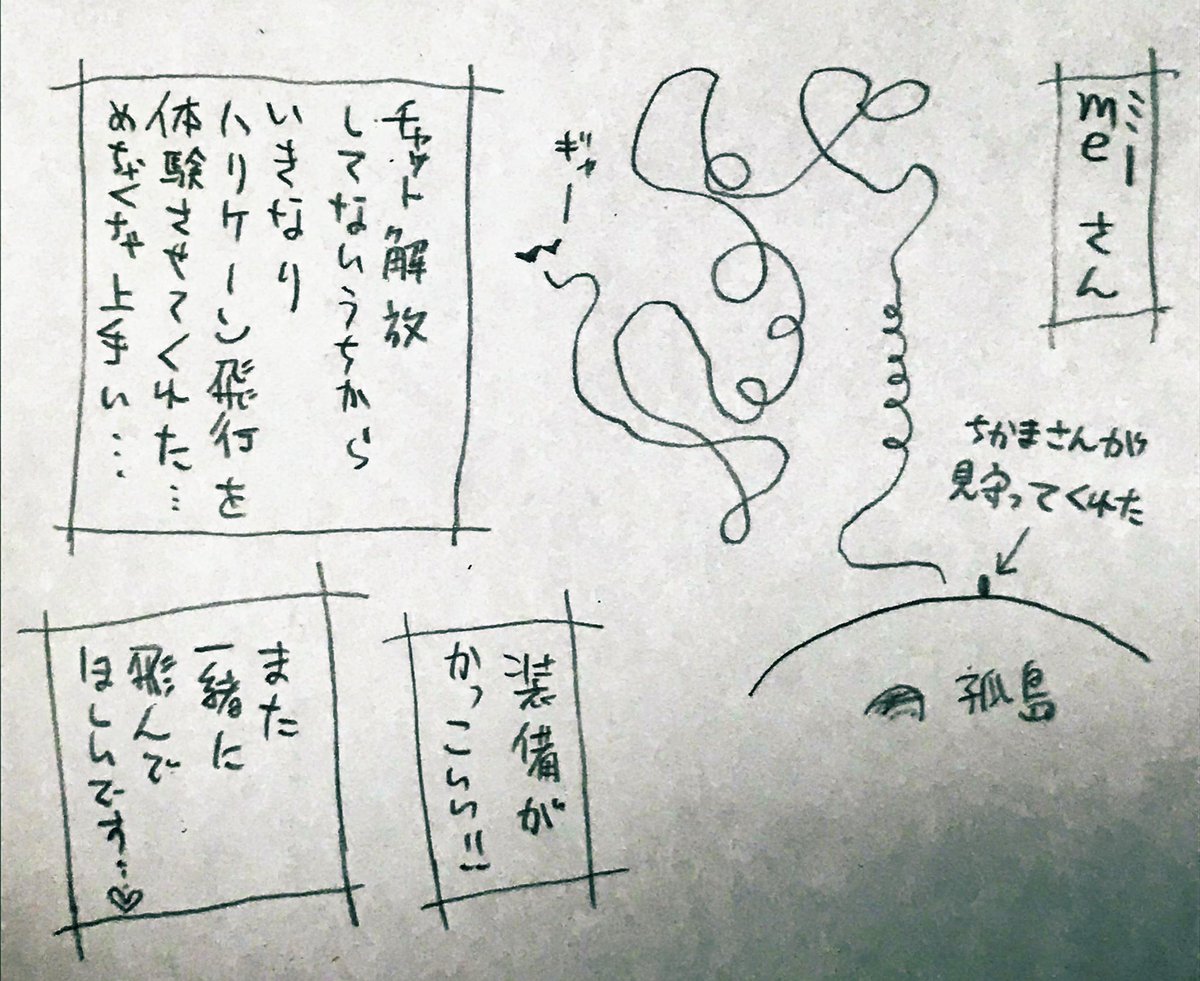 ミー
meさん
ちかまさんが
見守ってくれた
孤島
ギャー
チャット解放
してないうちから
いきなり
ハリケーン飛行を
体験させてくれた…
めちゃくちゃ上手い…
装備が
かっこいい!!
また
一緒に
飛んで
ほしいです…♡